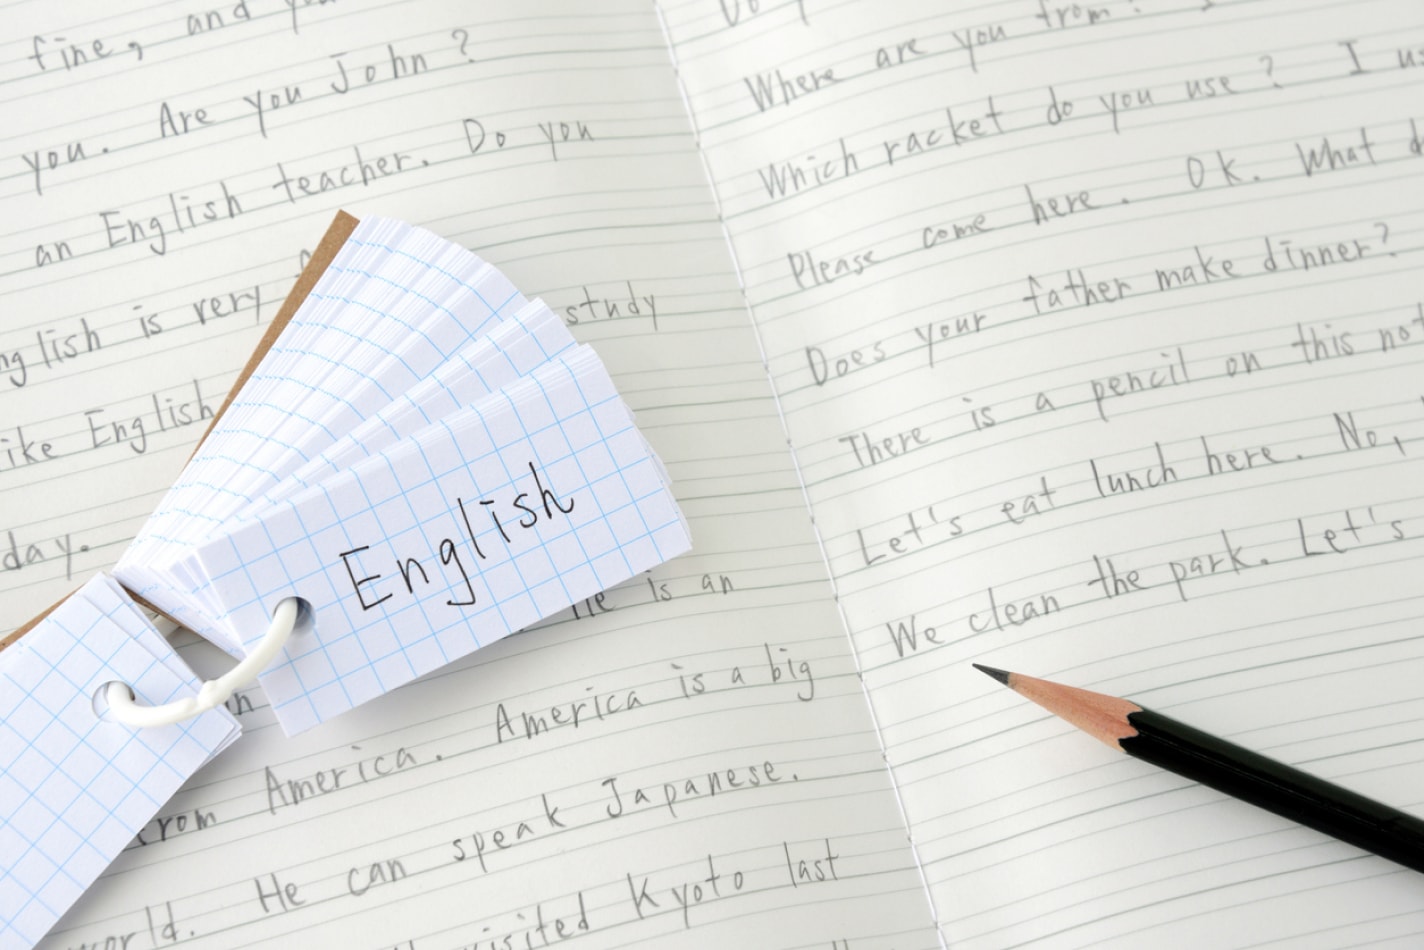 fine, and
you. Are you John?
an English teacher. Do you
English is very
study
like English
day.
English
He is an
from America. America is a big
world. He can speak Japanese.
visited Kyoto last
Where are you from?
Which racket do you use? I
Please come here. Ok. What
Does your father make dinner?
There is a pencil on this
Let's eat lunch here. No,
We clean the park. Let's